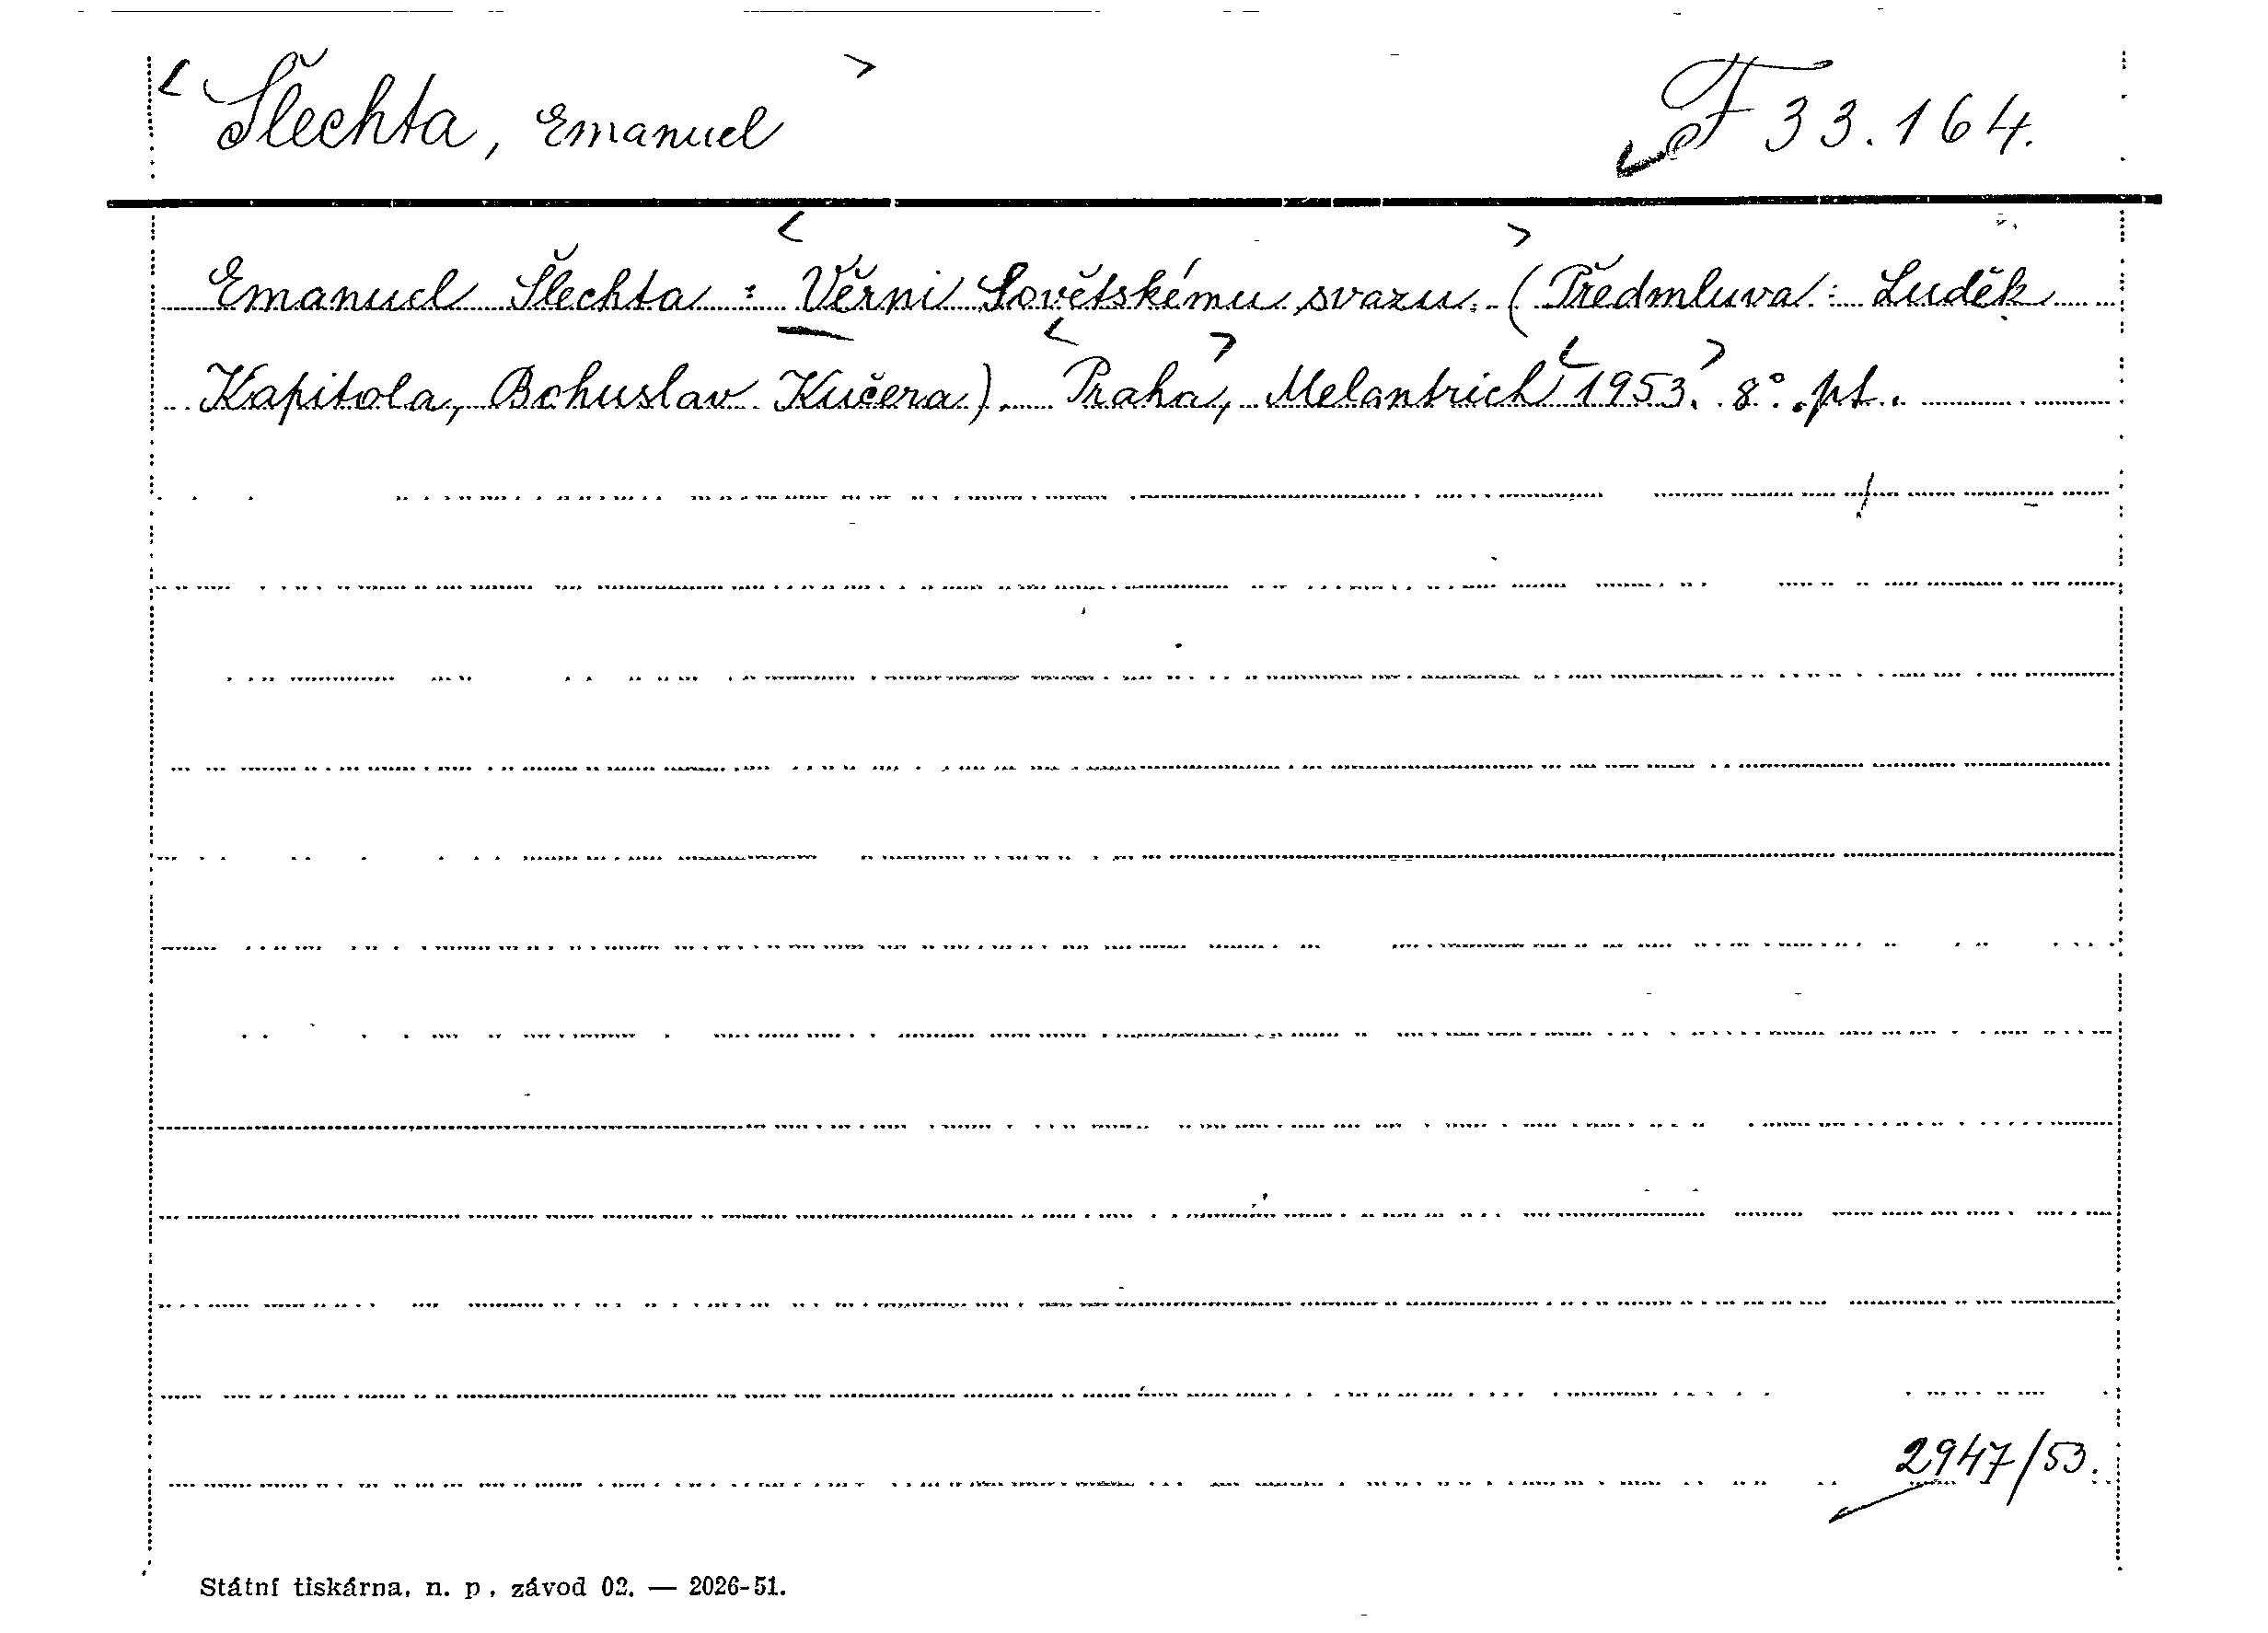 < Šlechta, Emanuel > F 33.164.
Emanuel Šlechta : < Věrni Sovětskému svazu. > (Předmluva : Luděk
Kapitola, Bohuslav Kučera). < Praha >, Melantrich < 1953. > 8°. pt.
2947/53.
Státní tiskárna, n. p., závod 02. — 2026-51.